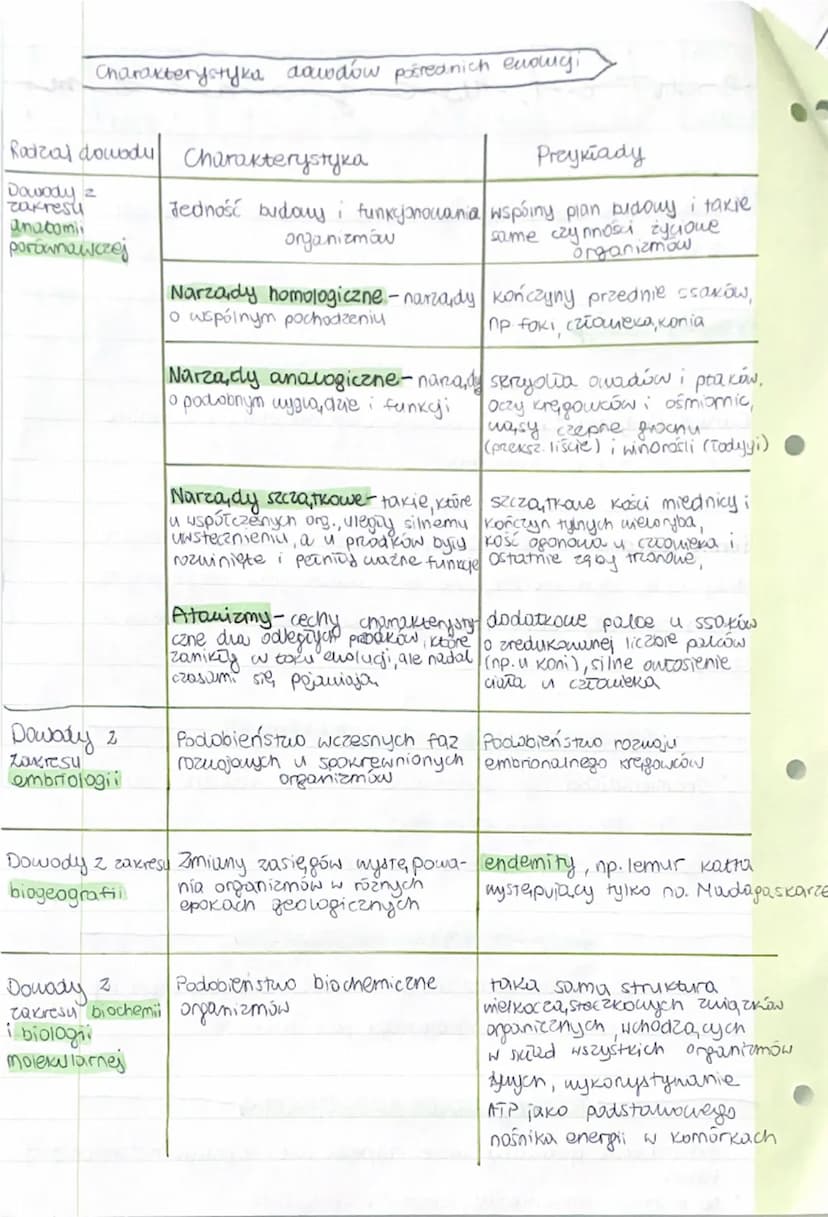 Charakterystyka dowodów pośrednich ewolucji
Rodzaj dowodu
Charakterystyka
Przykłady
Dowody z
zakresu
anatomii
porównawczej
Jedność budowy i funkcjonowania
organizmów
wspólny plan budowy i takie
same czynności życiowe
organizmów
Narządy homologiczne - narządy
o wspólnym pochodzeniu
kończyny przednie ssaków,
np. foki, człowieka, konia
Narządy analogiczne - narządy
o podobnym wyglądzie i funkcji
skrzydła owadów i ptaków,
oczy kręgowców i ośmiornic,
wąsy czepne grochu
(przeksz. liście) i winorośli (łodygi)
Narządy szczątkowe - takie, które
u współczesnych org., uległy silnemu
uwstecznieniu, a u przodków były
rozwinięte i pełniły ważne funkcje
szczątkowe kości miednicy i
kończyn tylnych wieloryba,
kość ogonowa u człowieka i
ostatnie zęby trzonowe,
Atawizmy - cechy charakterysty-
czne dla odległych przodków, które
zanikły w toku ewolucji, ale nadal
czasami się pojawiają
dodatkowe palce u ssaków
o zredukowanej liczbie palców
(np. u koni), silne owłosienie
ciała u człowieka
Dowody z
zakresu
embriologii
Podobieństwo wczesnych faz
rozwojowych u spokrewnionych
organizmów
Podobieństwo rozwoju
embrionalnego kręgowców
Dowody z zakresu
biogeografii
Zmiany zasięgów występowa-
nia organizmów w różnych
epokach geologicznych
endemity, np. lemur katta
występujący tylko na Madagaskarze
Dowody z
zakresu biochemii
i biologii
molekularnej
Podobieństwo biochemiczne
organizmów
taka sama struktura
wielkocząsteczkowych związków
organicznych, wchodzących
w skład wszystkich organizmów
żywych, wykorzystywanie
ATP jako podstawowego
nośnika energii w komórkach